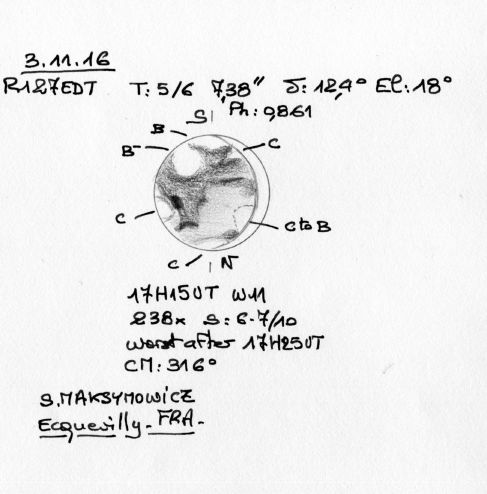 3.11.16
R127EDT T: 5/6 7,38" D: 12,4° El: 18°
Ph: 0,861
S
B
B-
C
C
C to B
C
N
17H15UT W11
238x S: 6-7/10
worst after 17H25UT
CM: 316°
S. MAKSYMOWICZ
Ecquevilly - FRA -